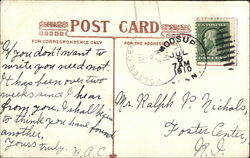 POST CARD
FOR CORRESPONDENCE ONLY
FOR THE ADDRESS
OOSUP
JUL
AM
1910
If you don't want to
write you need not.
It has been over two
weeks since I hear
from you. I shall begin
to think you have found
another.
Yours truly. B.A.C.
Mr. Ralph P. Nichols,
Foster Center,
R.I.